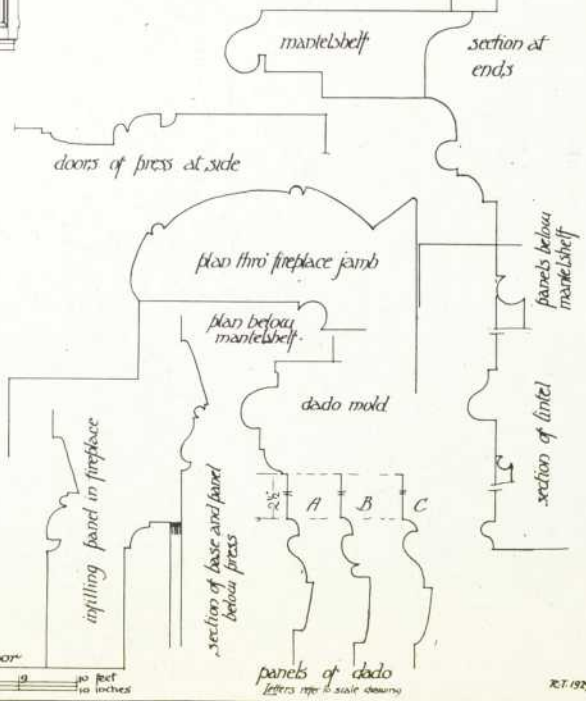 mantelshelf
section at
ends
doors of press at side
plan thro' fireplace jamb
panels below
mantelshelf
plan below
mantelshelf.
dado mold
section of lintel
infilling panel in fireplace
section of base and panel
below press
2½"
A
B
C
panels of dado
Letters refer to scale drawing
9
10 feet
10 inches